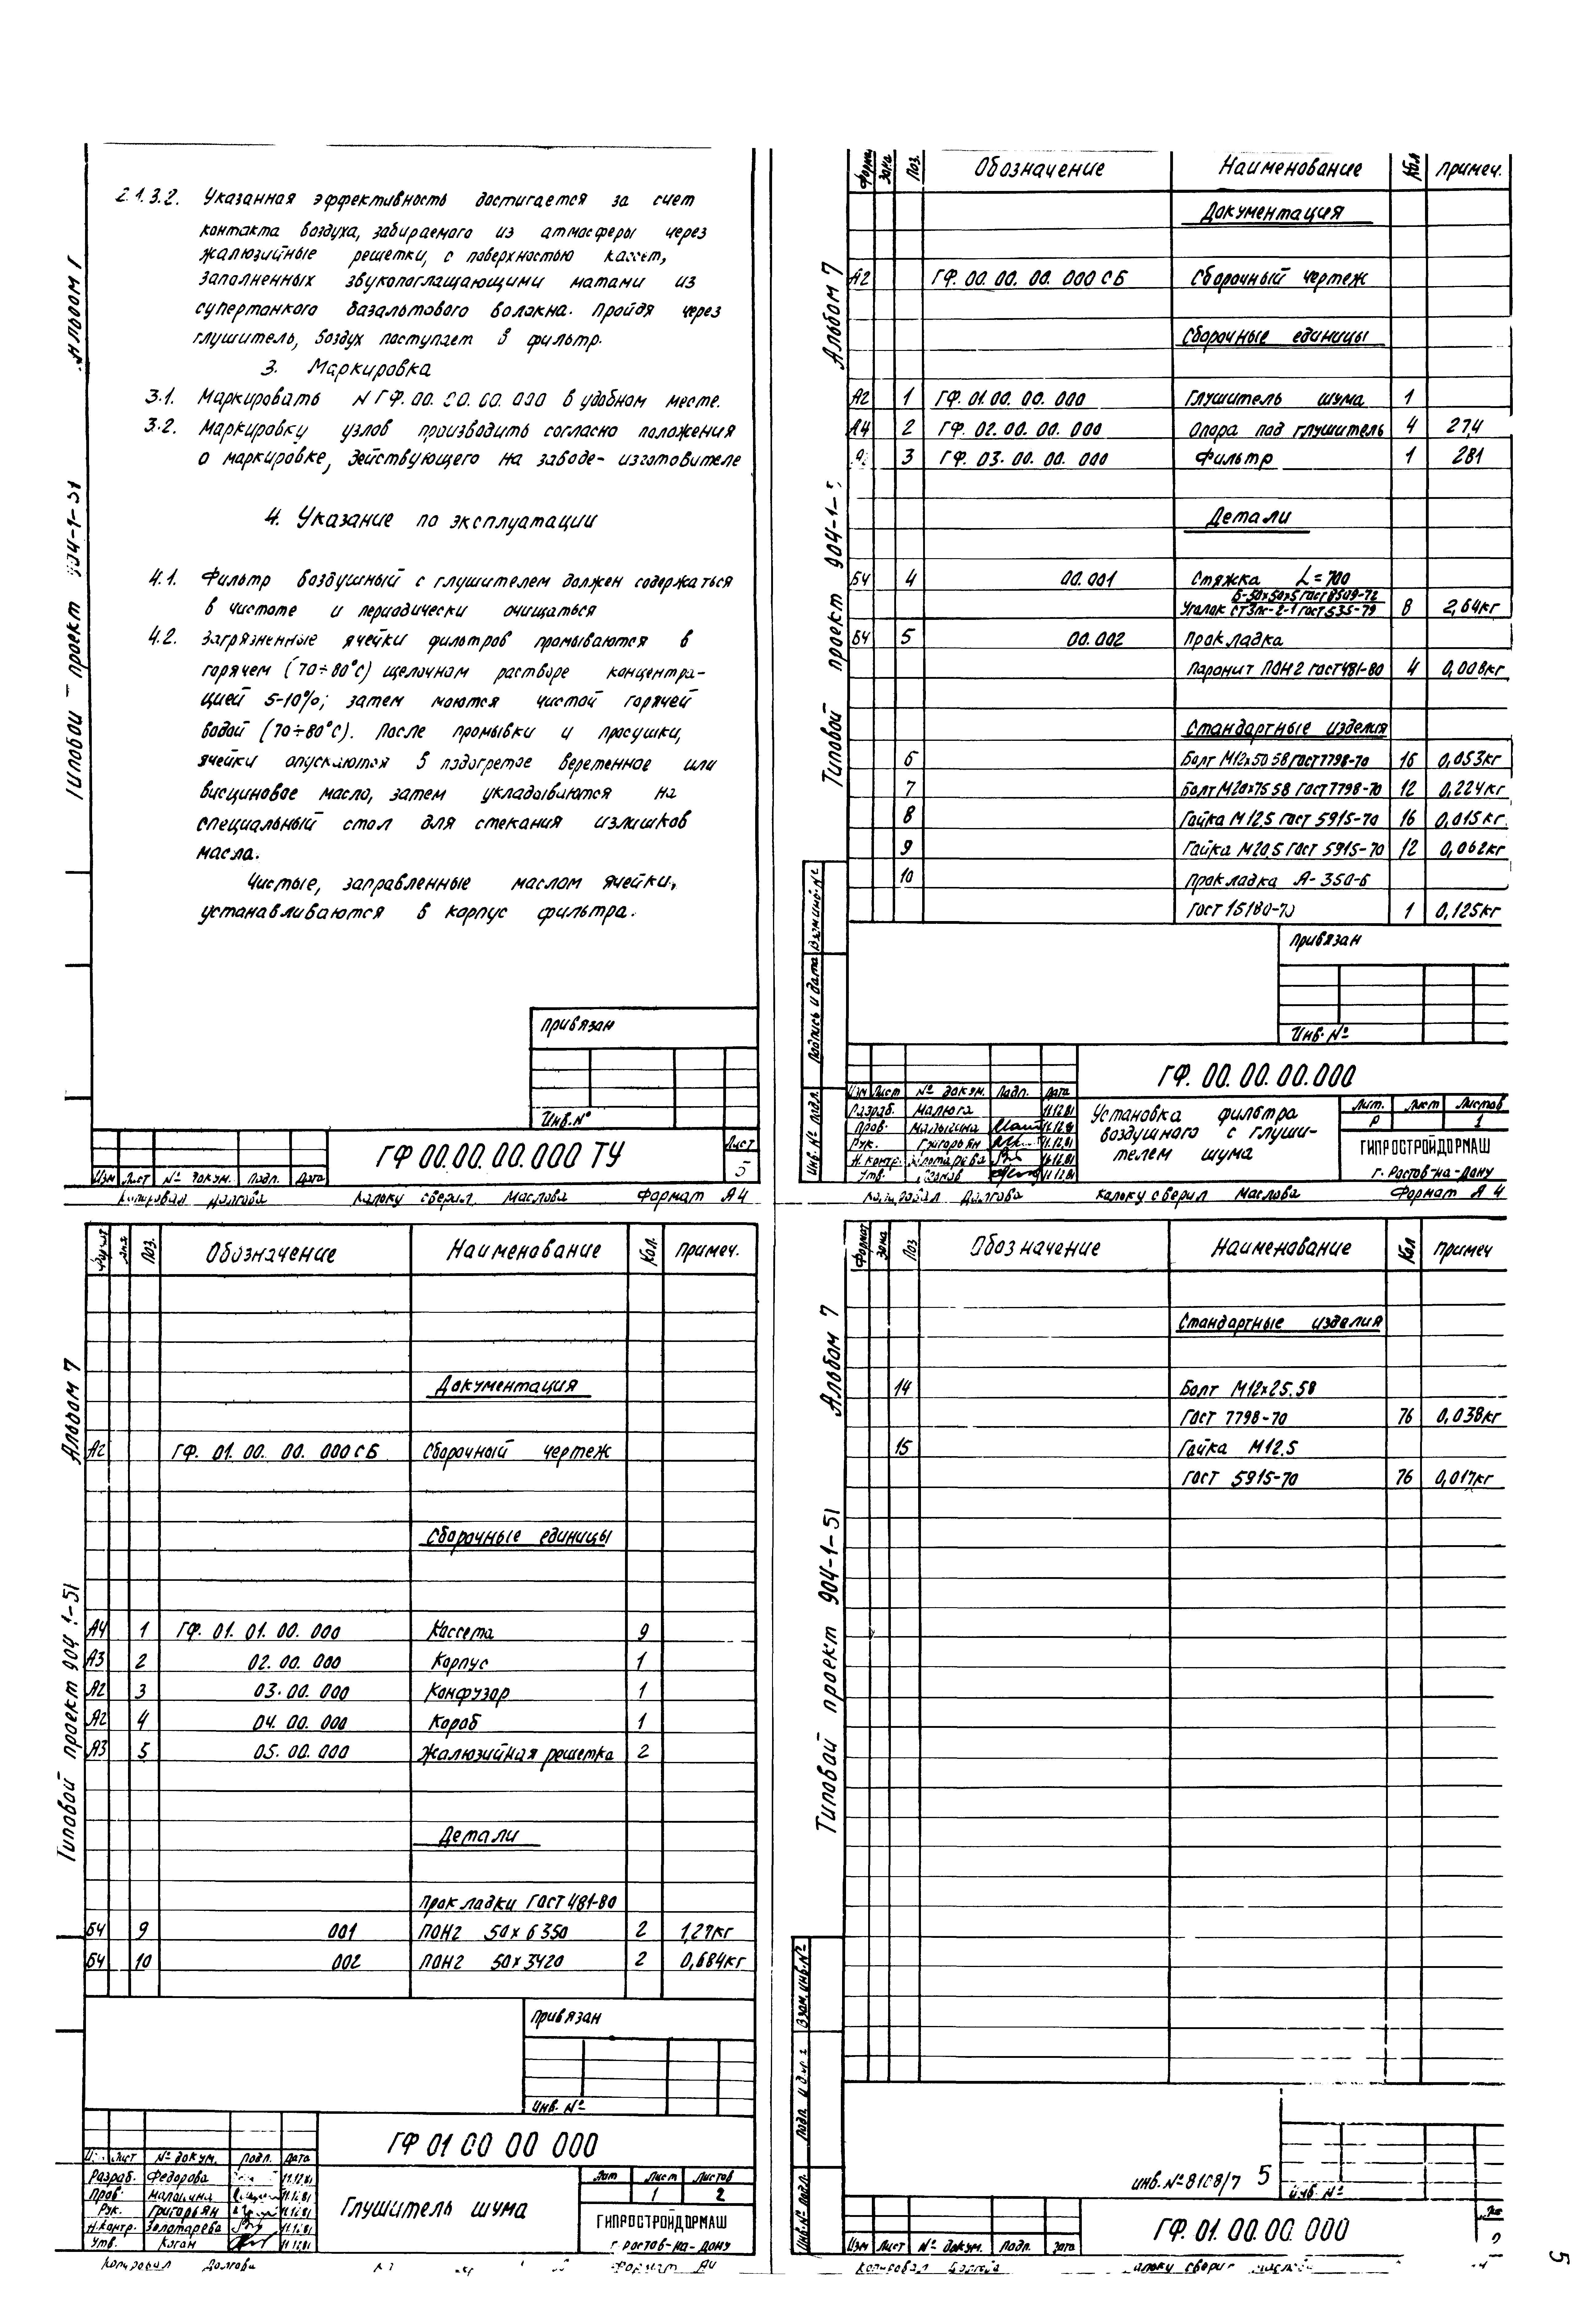 2.1.3.2. Указанная эффективность достигается за счет
контакта воздуха, забираемого из атмосферы через
жалюзийные решетки, с поверхностью кассет,
заполненных звукопоглащающими матами из
супертонкого базальтового волокна. Пройдя через
глушитель, воздух поступает в фильтр.
3. Маркировка
3.1. Маркировать № ГФ. 00. 00. 00. 000 в удобном месте.
3.2. Маркировку узлов производить согласно положения
о маркировке, действующего на заводе-изготовителе
4. Указание по эксплуатации
4.1. Фильтр воздушный с глушителем должен содержаться
в чистоте и периодически очищаться
4.2. Загрязненные ячейки фильтров промываются в
горячем (70÷80°С) щелочном растворе концентра-
цией 5-10%; затем моются чистой горячей
водой (70÷80°С). После промывки и просушки,
ячейки опускаются в подогретое веретенное или
висциновое масло, затем укладываются на
специальный стол для стекания излишков
масла.
Чистые, заправленные маслом ячейки,
устанавливаются в корпус фильтра.
Альбом
Типовой проект 904-1-51
Привязан
Инв. №
ГФ 00.00.00.000 ТУ
Лист
5
Изм Лист № докум. Подп. Дата
Копировал Долгова Кальку сверил Маслова Формат А4
Альбом 7
Типовой проект 904-1-
Формат Зона Поз. Обозначение Наименование Кол Примеч.
Документация
А2 ГФ. 00. 00. 00. 000 СБ Сборочный чертеж
Сборочные единицы
А2 1 ГФ. 01. 00. 00. 000 Глушитель шума 1
А4 2 ГФ. 02. 00. 00. 000 Опора под глушитель 4 27,4
3 ГФ. 03. 00. 00. 000 Фильтр 1 281
Детали
БЧ 4 00.001 Стяжка L=700
Б-50х50х5 ГОСТ 8509-72
Уголок Ст3пс-2-1 ГОСТ 535-79 8 2,64кг
БЧ 5 00.002 Прокладка
Паронит ПОН2 ГОСТ 481-80 4 0,008кг
Стандартные изделия
6 Болт М12х50 58 ГОСТ 7798-70 16 0,053кг
7 Болт М20х75 58 ГОСТ 7798-70 12 0,224кг
8 Гайка М12.5 ГОСТ 5915-70 16 0,015кг
9 Гайка М20.5 ГОСТ 5915-70 12 0,062кг
10 Прокладка А-350-6
ГОСТ 15180-70 1 0,125кг
Привязан
Инв. №
Инв. № подл. Подпись и дата Взам.инв.№
ГФ. 00. 00. 00.000
Изм Лист № докум. Подп. Дата
Разраб. Малюга 11.12.81
Пров. Малыгина 11.12.81
Рук. Григорьян 11.12.81
Н. контр. Золотарева
Утв. Коган
Установка фильтра
воздушного с глуши-
телем шума
Лит. Лист Листов
Р 1
ГИПРОСТРОЙДОРМАШ
г. Ростов-на-Дону
Копировал Долгова Кальку сверил Маслова Формат А4
Альбом 7
Типовой проект 904-1-51
Формат Поз. Обозначение Наименование Кол. Примеч.
Документация
А2 ГФ. 01. 00. 00. 000 СБ Сборочный чертеж
Сборочные единицы
А4 1 ГФ. 01. 01. 00. 000 Кассета 9
А3 2 02. 00. 000 Корпус 1
А2 3 03. 00. 000 Конфузор 1
А2 4 04. 00. 000 Короб 1
А3 5 05. 00. 000 Жалюзийная решетка 2
Детали
Прокладки ГОСТ 481-80
БЧ 9 001 ПОН2 50х6350 2 1,27кг
БЧ 10 002 ПОН2 50х3420 2 0,684кг
Привязан
Инв. №
ГФ 01 00 00 000
Лист № докум. Подп. Дата
Разраб. Федорова 11.12.81
Пров. Малыгина 11.12.81
Рук. Григорьян 11.12.81
Н.контр. Золотарева 11.12.81
Утв. Коган 11.12.81
Глушитель шума
Лит Лист Листов
1 2
ГИПРОСТРОЙДОРМАШ
г. Ростов-на-Дону
Копировал Долгова Формат А4
Альбом 7
Типовой проект 904-1-51
Формат Зона Поз Обозначение Наименование Кол Примеч
Стандартные изделия
14 Болт М12х25.58
ГОСТ 7798-70 76 0,038кг
15 Гайка М12.5
ГОСТ 5915-70 76 0,017кг
Инв. № подл. Подп. и дата Взам.инв.№
инв. № 8108/7 5
Инв. №
ГФ. 01. 00. 00. 000
Изм Лист № докум. Подп. Дата
2
Копировал Долгова Кальку сверил Маслова
5